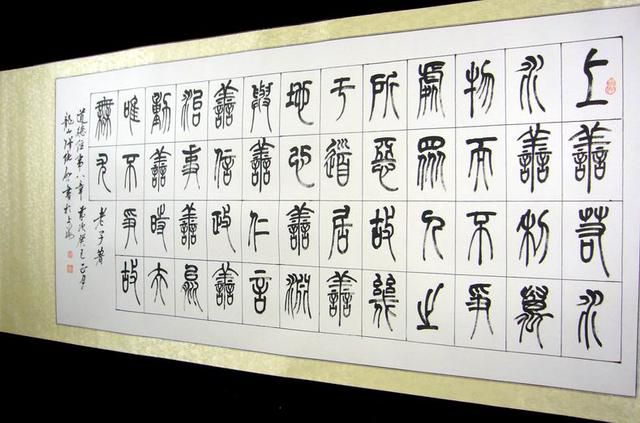 上善若水
水善利萬
物而不爭
處眾人之
所惡故幾
于道居善
地心善淵
與善仁言
善信政善
治事善能
動善時夫
唯不爭故
無尤
老子著
道德經第八章 歲次癸巳正月
龍山 書於